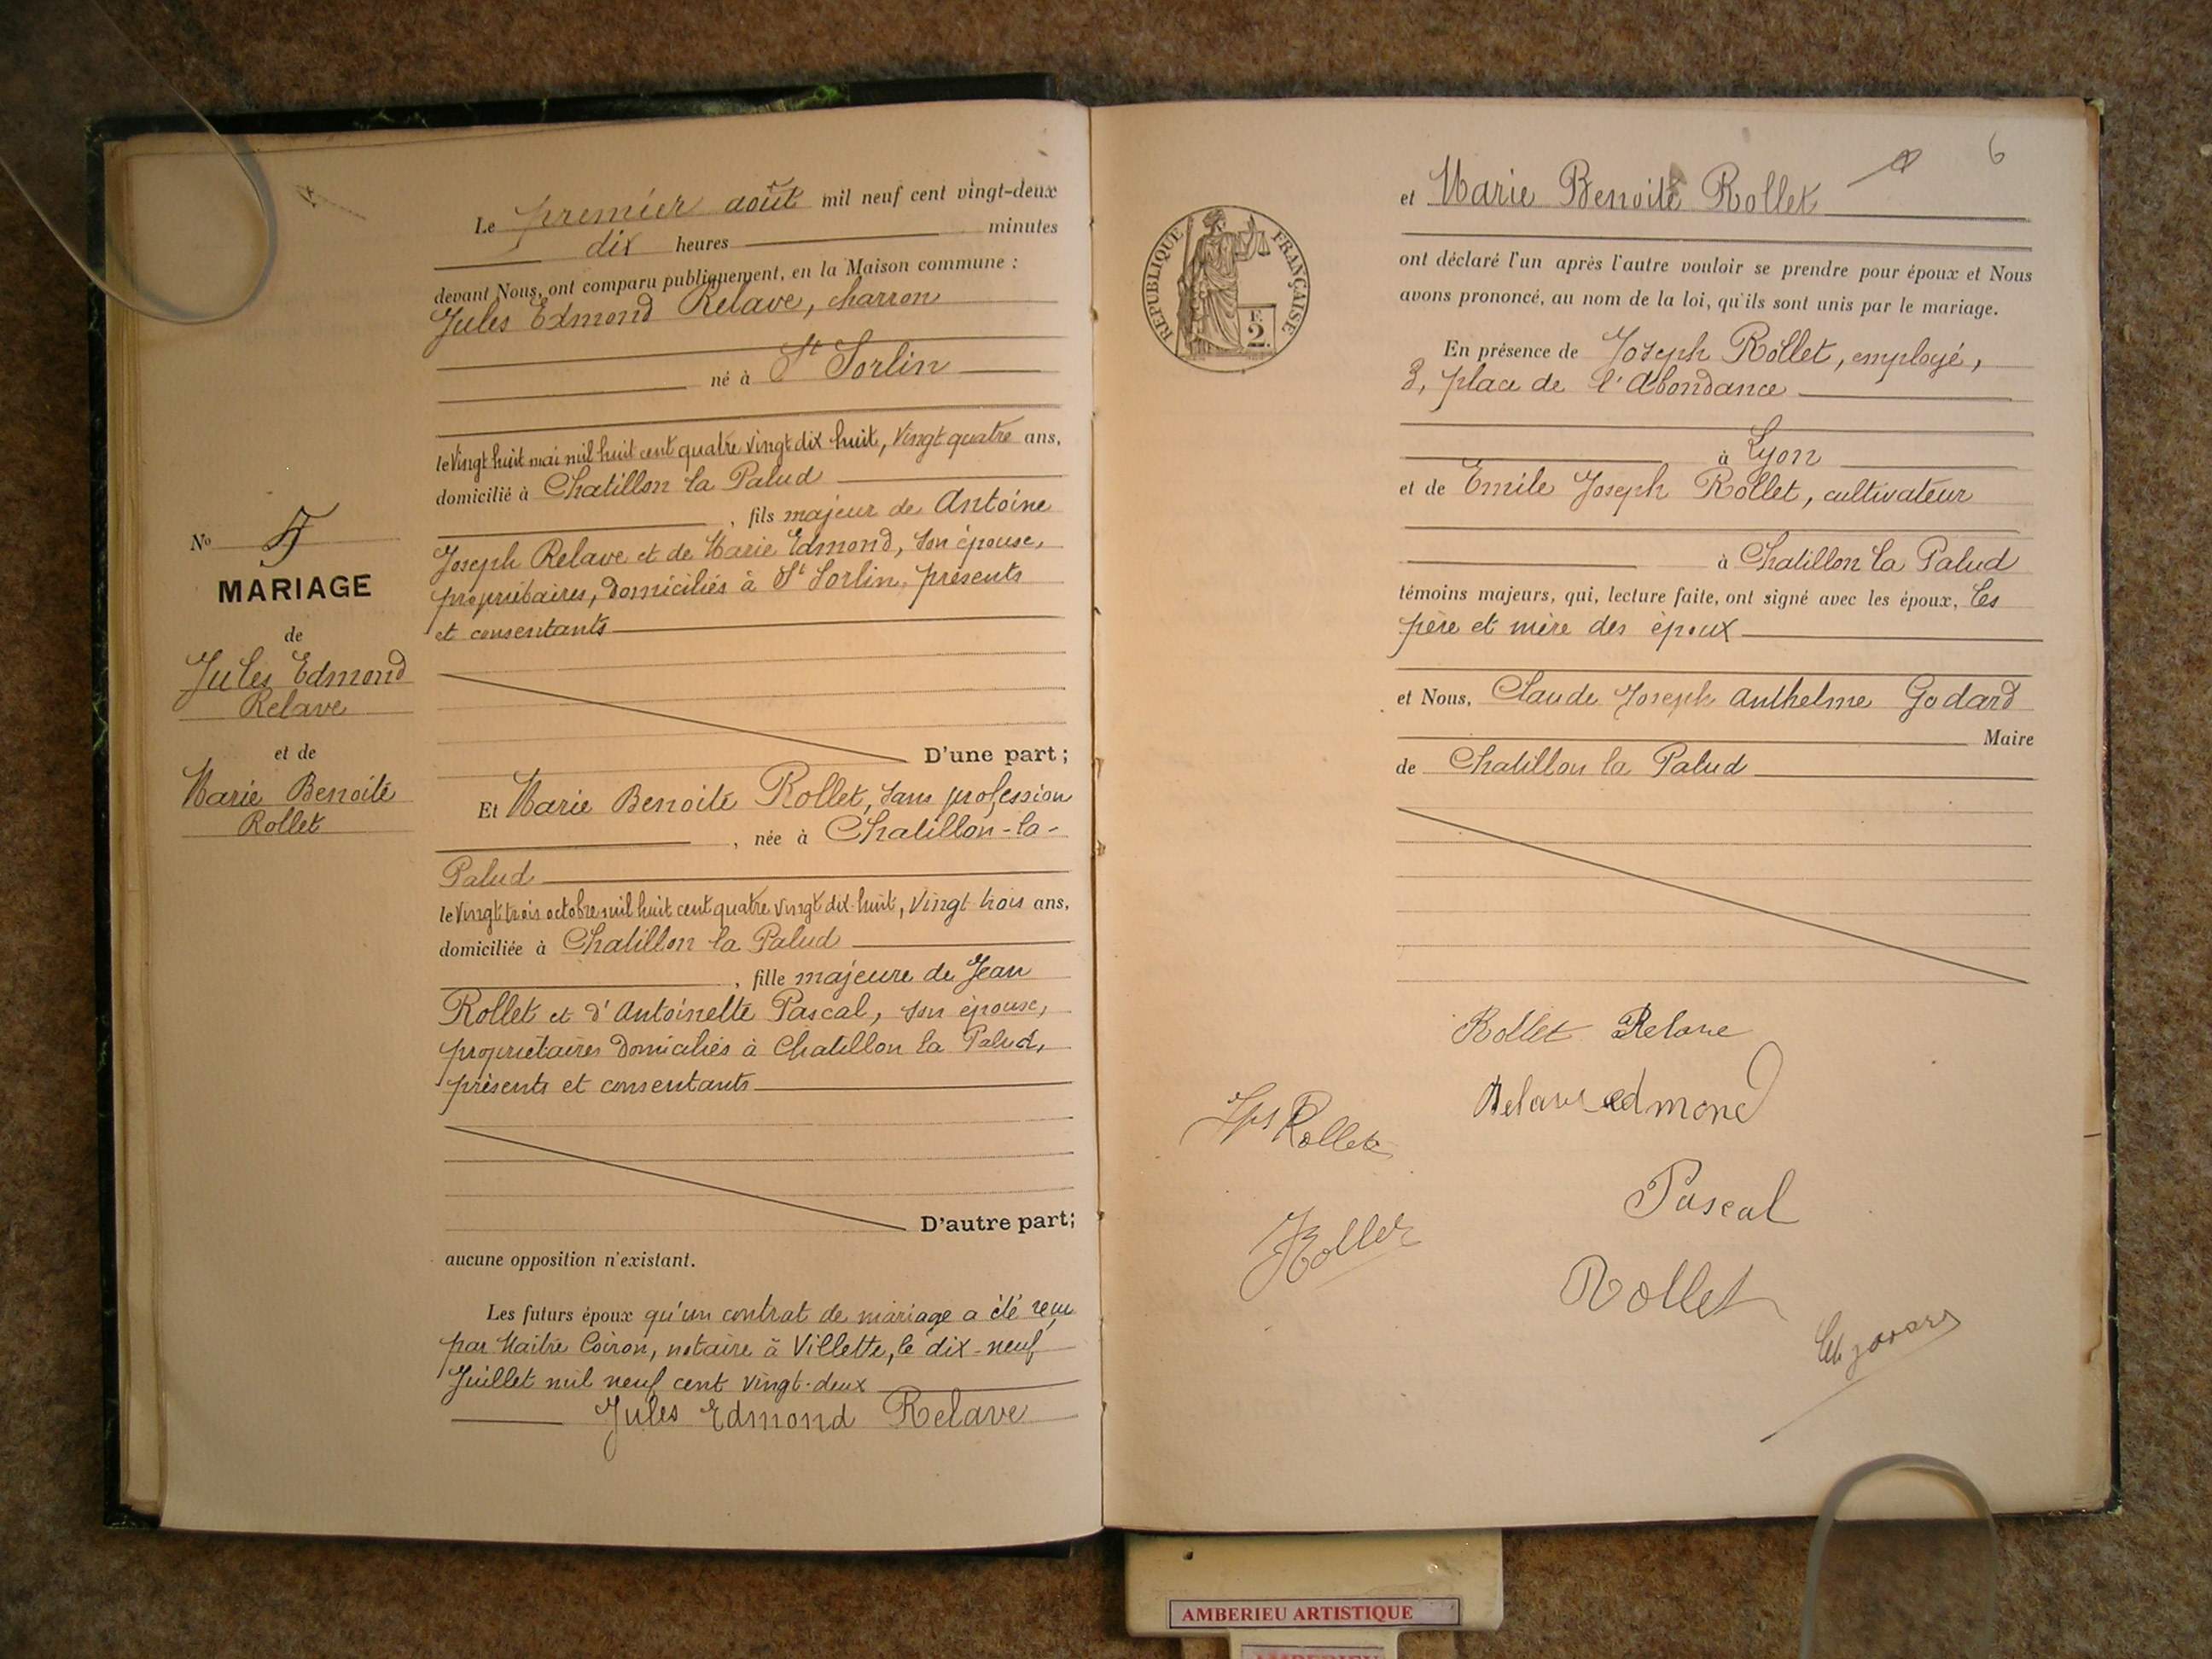 Nº 5
MARIAGE
de
Jules Edmond
Relave
et de
Marie Benoite
Rollet
Le premier août mil neuf cent vingt-deux
dix heures minutes
devant Nous, ont comparu publiquement, en la Maison commune :
Jules Edmond Relave, charron
né à St Sorlin
le vingt huit mai mil huit cent quatre vingt dix huit, vingt quatre ans,
domicilié à Chatillon la Palud
, fils majeur de Antoine
Joseph Relave et de Marie Edmond, son épouse,
propriétaires, domiciliés à St Sorlin, présents
et consentants
D'une part ;
Et Marie Benoite Rollet, sans profession
, née à Chatillon-la-
Palud
le vingt trois octobre mil huit cent quatre vingt dix-huit, vingt trois ans,
domiciliée à Chatillon la Palud
, fille majeure de Jean
Rollet et d'Antoinette Pascal, son épouse,
propriétaires domiciliés à Chatillon la Palud,
présents et consentants
D'autre part ;
aucune opposition n'existant.
Les futurs époux qu'un contrat de mariage a été reçu
par Maitre Coiron, notaire à Villette, le dix-neuf
Juillet mil neuf cent vingt-deux
Jules Edmond Relave
6
et Marie Benoite Rollet
RÉPUBLIQUE FRANÇAISE
F.
2.
ont déclaré l'un après l'autre vouloir se prendre pour époux et Nous
avons prononcé, au nom de la loi, qu'ils sont unis par le mariage.
En présence de Joseph Rollet, employé,
3, place de l'Abondance
à Lyon
et de Emile Joseph Rollet, cultivateur
à Chatillon la Palud
témoins majeurs, qui, lecture faite, ont signé avec les époux, les
père et mère des époux
et Nous, Claude Joseph Anthelme Godard
Maire
de Chatillon la Palud
Rollet Relave
Relave edmond
Jph Rollet
Pascal
Rollet
Rollet
AMBERIEU ARTISTIQUE
AMBERIEU